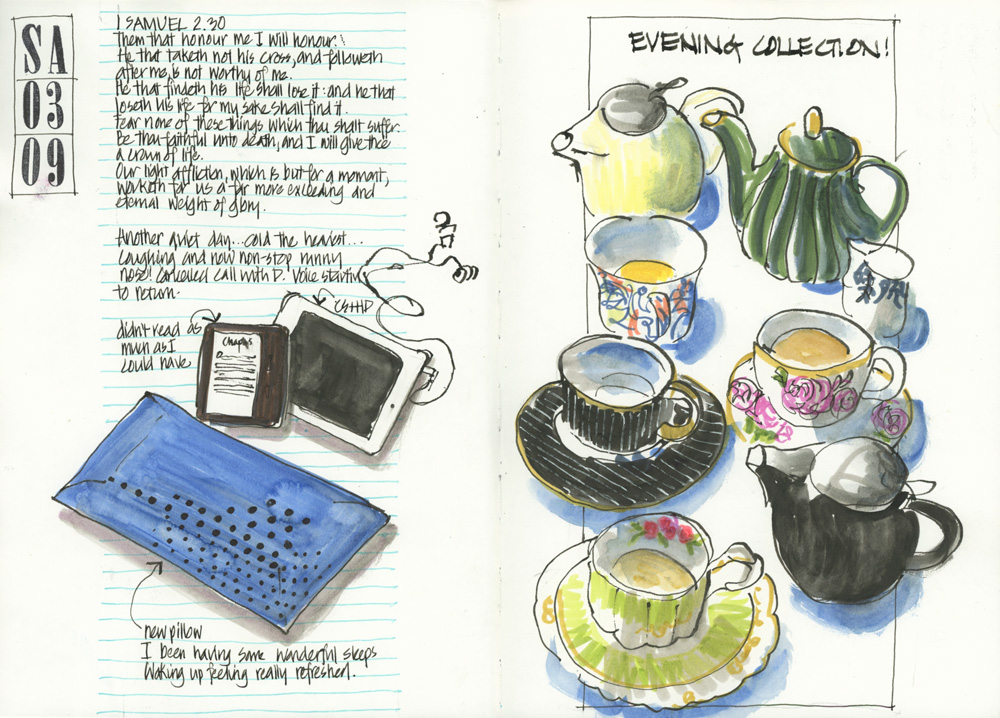 SA
03
09
1 SAMUEL 2.30
Them that honour me I will honour.
He that taketh not his cross, and followeth
after me, is not worthy of me.
He that findeth his life shall lose it: and he that
loseth his life for my sake shall find it.
Fear none of these things which thou shalt suffer.
Be thou faithful unto death, and I will give thee
a crown of life.
Our light affliction, which is but for a moment,
worketh for us a far more exceeding and
eternal weight of glory.
Another quiet day... cold the heaviest...
coughing and now non-stop runny
nose! Cancelled call with D. Voice starting
to return.
didn't read as
much as I
could have
new pillow
I been having some wonderful sleeps
Waking up feeling really refreshed.
EVENING COLLECTION!